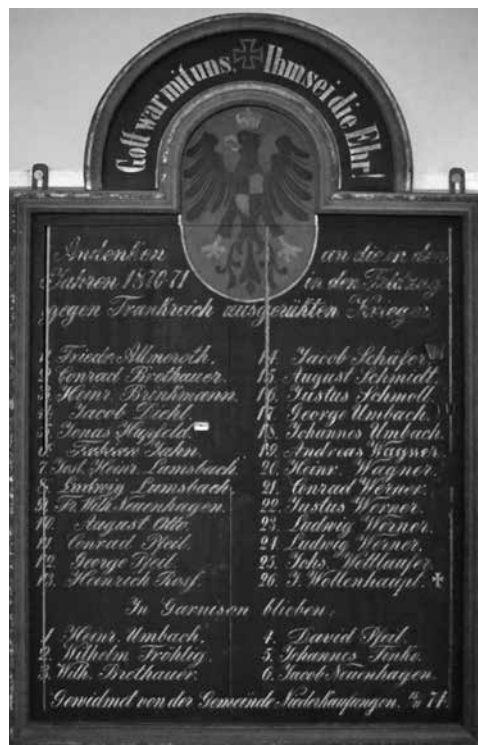 Gott war mit uns, Ihm sei die Ehr!
Andenken an die in den
Jahren 1870-71 in den Feldzug
gegen Frankreich ausgerükten Krieger
1. Friedr. Allmeroth.
2. Conrad Brethauer.
3. Heinr. Brinkmann.
4. Jacob Diehl.
5. Jonas Hupfeld.
6. Jahn.
7. Just. Heinr. Lumsbach.
8. Ludwig Lumsbach.
9. Fr. Wilh. Neuenhagen.
10. August Otto.
11. Conrad Pfeil.
12. George Pfeil.
13. Heinrich Rosf.
14. Jacob Schäfer.
15. August Schmidt.
16. Justus Schmell.
17. George Umbach.
18. Johannes Umbach.
19. Andreas Wagner.
20. Heinr. Wagner.
21. Conrad Werner.
22. Justus Werner.
23. Ludwig Werner.
24. Ludwig Werner.
25. Johs. Wettlaufer.
26. J. Wollenhaupt.
In Garnison blieben:
1. Heinr. Umbach.
2. Wilhelm Fröhlig.
3. Wilh. Brethauer.
4. David Pfeil.
5. Johannes
6. Jacob Neuenhagen.
Gewidmet von der Gemeinde Niederkaufungen. 71.